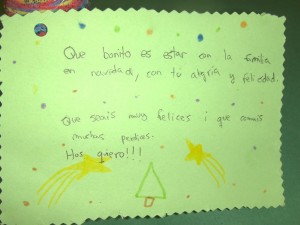 Que bonito es estar con la familia
en navidad, con tú alegría y felicidad.
Que seais muy felices i que comais
muchas perdias.
Hos quiero!!!